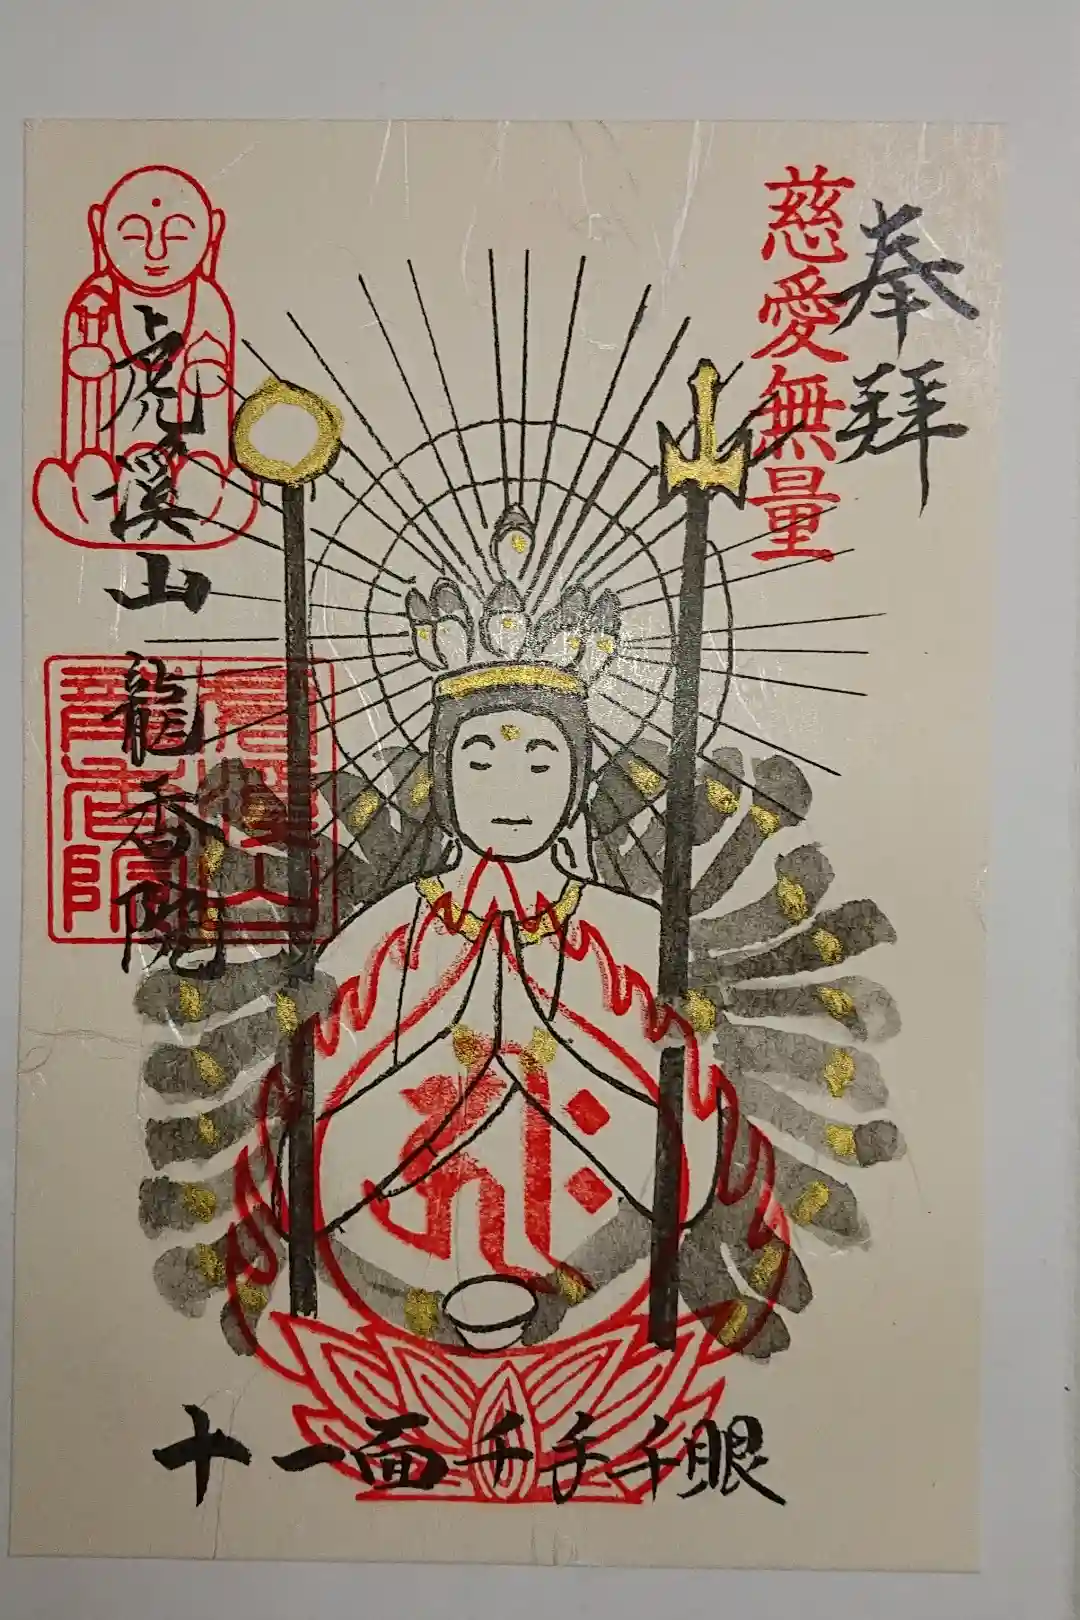 奉拝
慈愛無量
十一面千手千眼
虎溪山龍香院